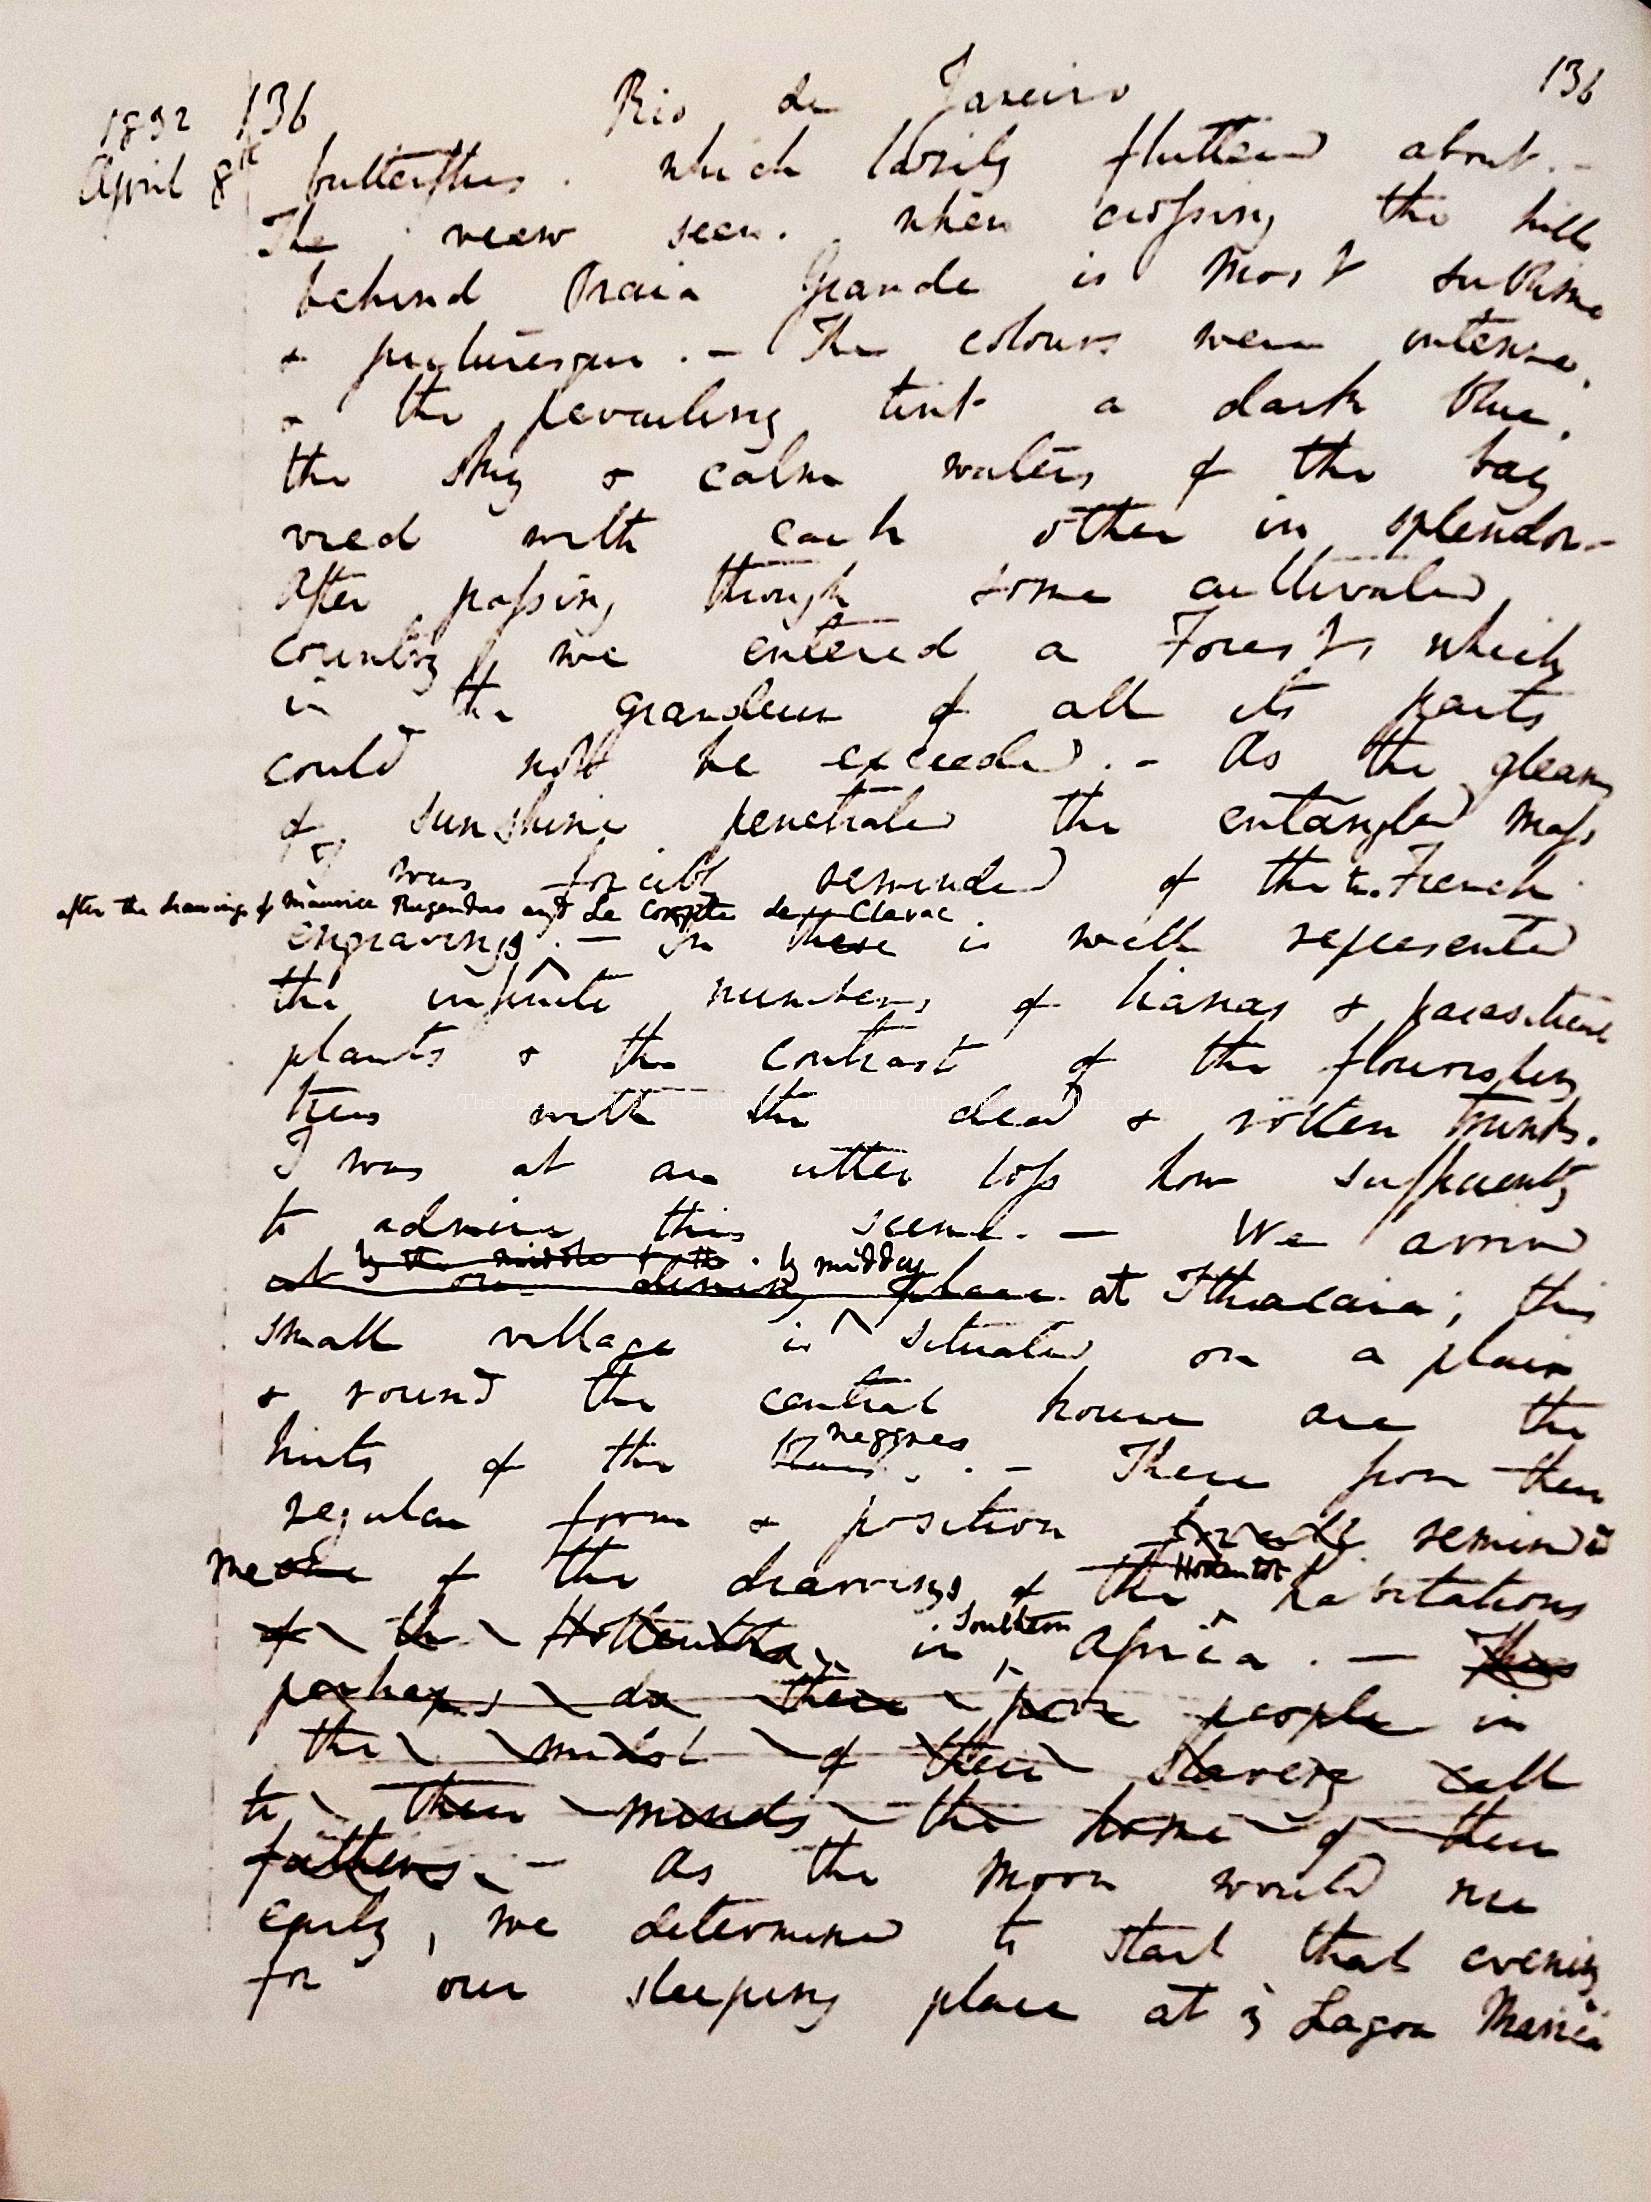 1832 136 Rio de Janeiro 136
April 8th butterflies. which lazily fluttered about.-
The view seen. when crossing the hills
behind Praia Grande is most sublime
& picturesque.- The colours were intense,
& the prevailing tint a dark blue,
the sky & calm waters of the bay
vied with each other in splendor.-
After passing through some cultivated
country, we entered a Forest, which
in the grandeur of all its parts
could not be exceeded.- As the gleams
of sunshine penetrated the entangled mass
I was forcibly reminded of the two French
after the drawings of Maurice Rugendas and Le Compte de Clavac
engravings.- In these is well represented
the infinite numbers of lianas & parasitical
plants & the contrast of the flourishing
trees with the dead & rotten trunks.
I was at an utter loss how sufficiently
to admire this scene.- We arrived
by the middle of the . by midday
at our dining place at Ithacaia; this
small village is situated on a plain
& round the central house are the
negroes
huts of the .- These from their
regular form & position forcibly reminded
Hottentot
me one of the drawings of the habitations
Southern
of the Hottentots, in Africa.- Thus
perhaps, do these poor people in
the midst of their slavery call
to their minds the home of their
fathers.- As the moon would rise
early, we determined to start that evening
for our sleeping place at Lagoa Marica